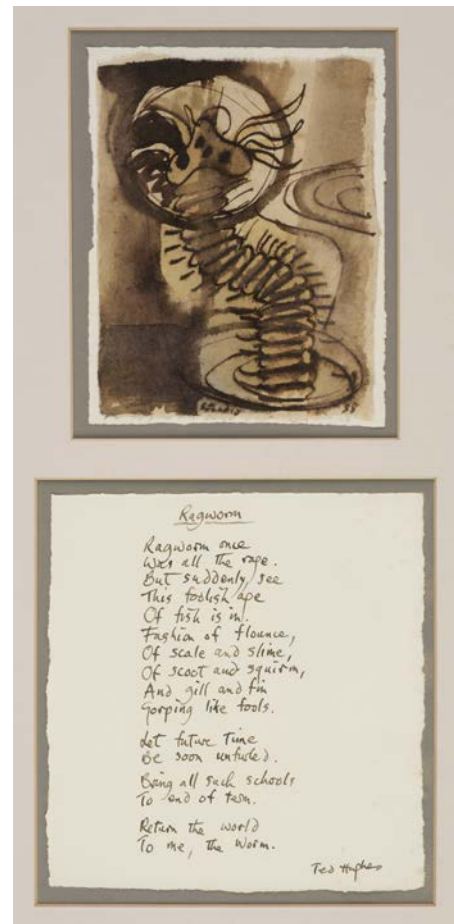 Ragworm
Ragworm once
Was all the rage.
But suddenly see
This foolish age
Of fish is in.
Fashion of flounce,
Of scale and slime,
Of scoot and squirm,
And gill and fin
Gorping like fools.
Let future time
Be soon unfurled.
Bring all such schools
To end of term.
Return the world
To me, the worm.
Ted Hughes